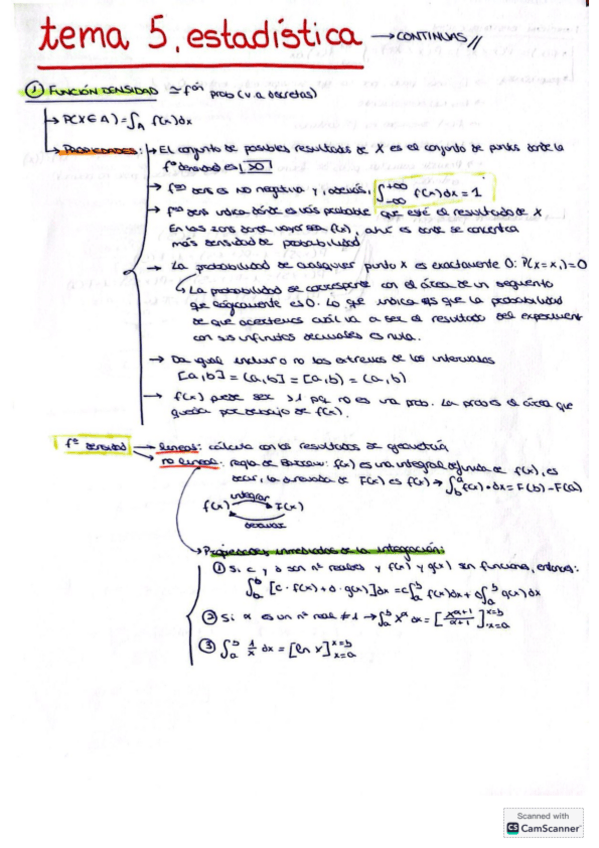 tema 5. estadística → CONTINUAS //
① FUNCIÓN DENSIDAD ≃ fón prob (v.a discretas)
↳ P(X∈A) = ∫_A f(x)dx
↳ PROPIEDADES: → El conjunto de posibles resultados de X es el conjunto de puntos donde la
fº densidad es >0
→ fón dens es no negativa y, además, ∫_{-∞}^{+∞} f(x)dx = 1
→ fón dens indica dónde es más probable que esté el resultado de X
En las zonas donde mayor sea f(x), ahí es donde se concentra
más densidad de probabilidad
→ La probabilidad de cualquier punto x es exactamente 0: P(X=x,)=0
↳ La probabilidad se corresponde con el área de un segmento
que lógicamente es 0. Lo que indica es que la probabilidad
de que acertemos cuál va a ser el resultado del experiment
con sus infinitos decimales es nula..
→ Da igual incluir o no los extremos de los intervalos
[a,b] = (a,b] = [a,b) = (a,b)
→ f(x) puede ser >1 pq no es una prob. La prob es el área que
queda por debajo de f(x).
fº densidad → lineal: cálculo con los resultados de geometría
→ no lineal: regla de Barrow: f(x) es una integral definida de f(x), es
decir, la derivada de F(x) es f(x) → ∫_b^a f(x)·dx = F(b) - F(a)
integrar
f(x) F(x)
derivar
→ Propiedades inmediatas de la integración:
① Si c y d son nº reales y f(x) y g(x) son funciones, entonces:
∫_a^b [c·f(x) + d·g(x)]dx = c∫_a^b f(x)dx + d∫_a^b g(x)dx
② Si α es un nº real ≠ 1 → ∫_a^b x^α dx = [x^{α+1}/α+1]_{x=a}^{x=b}
③ ∫_a^b 1/x dx = [ln x]_{x=a}^{x=b}
Scanned with
CS CamScanner